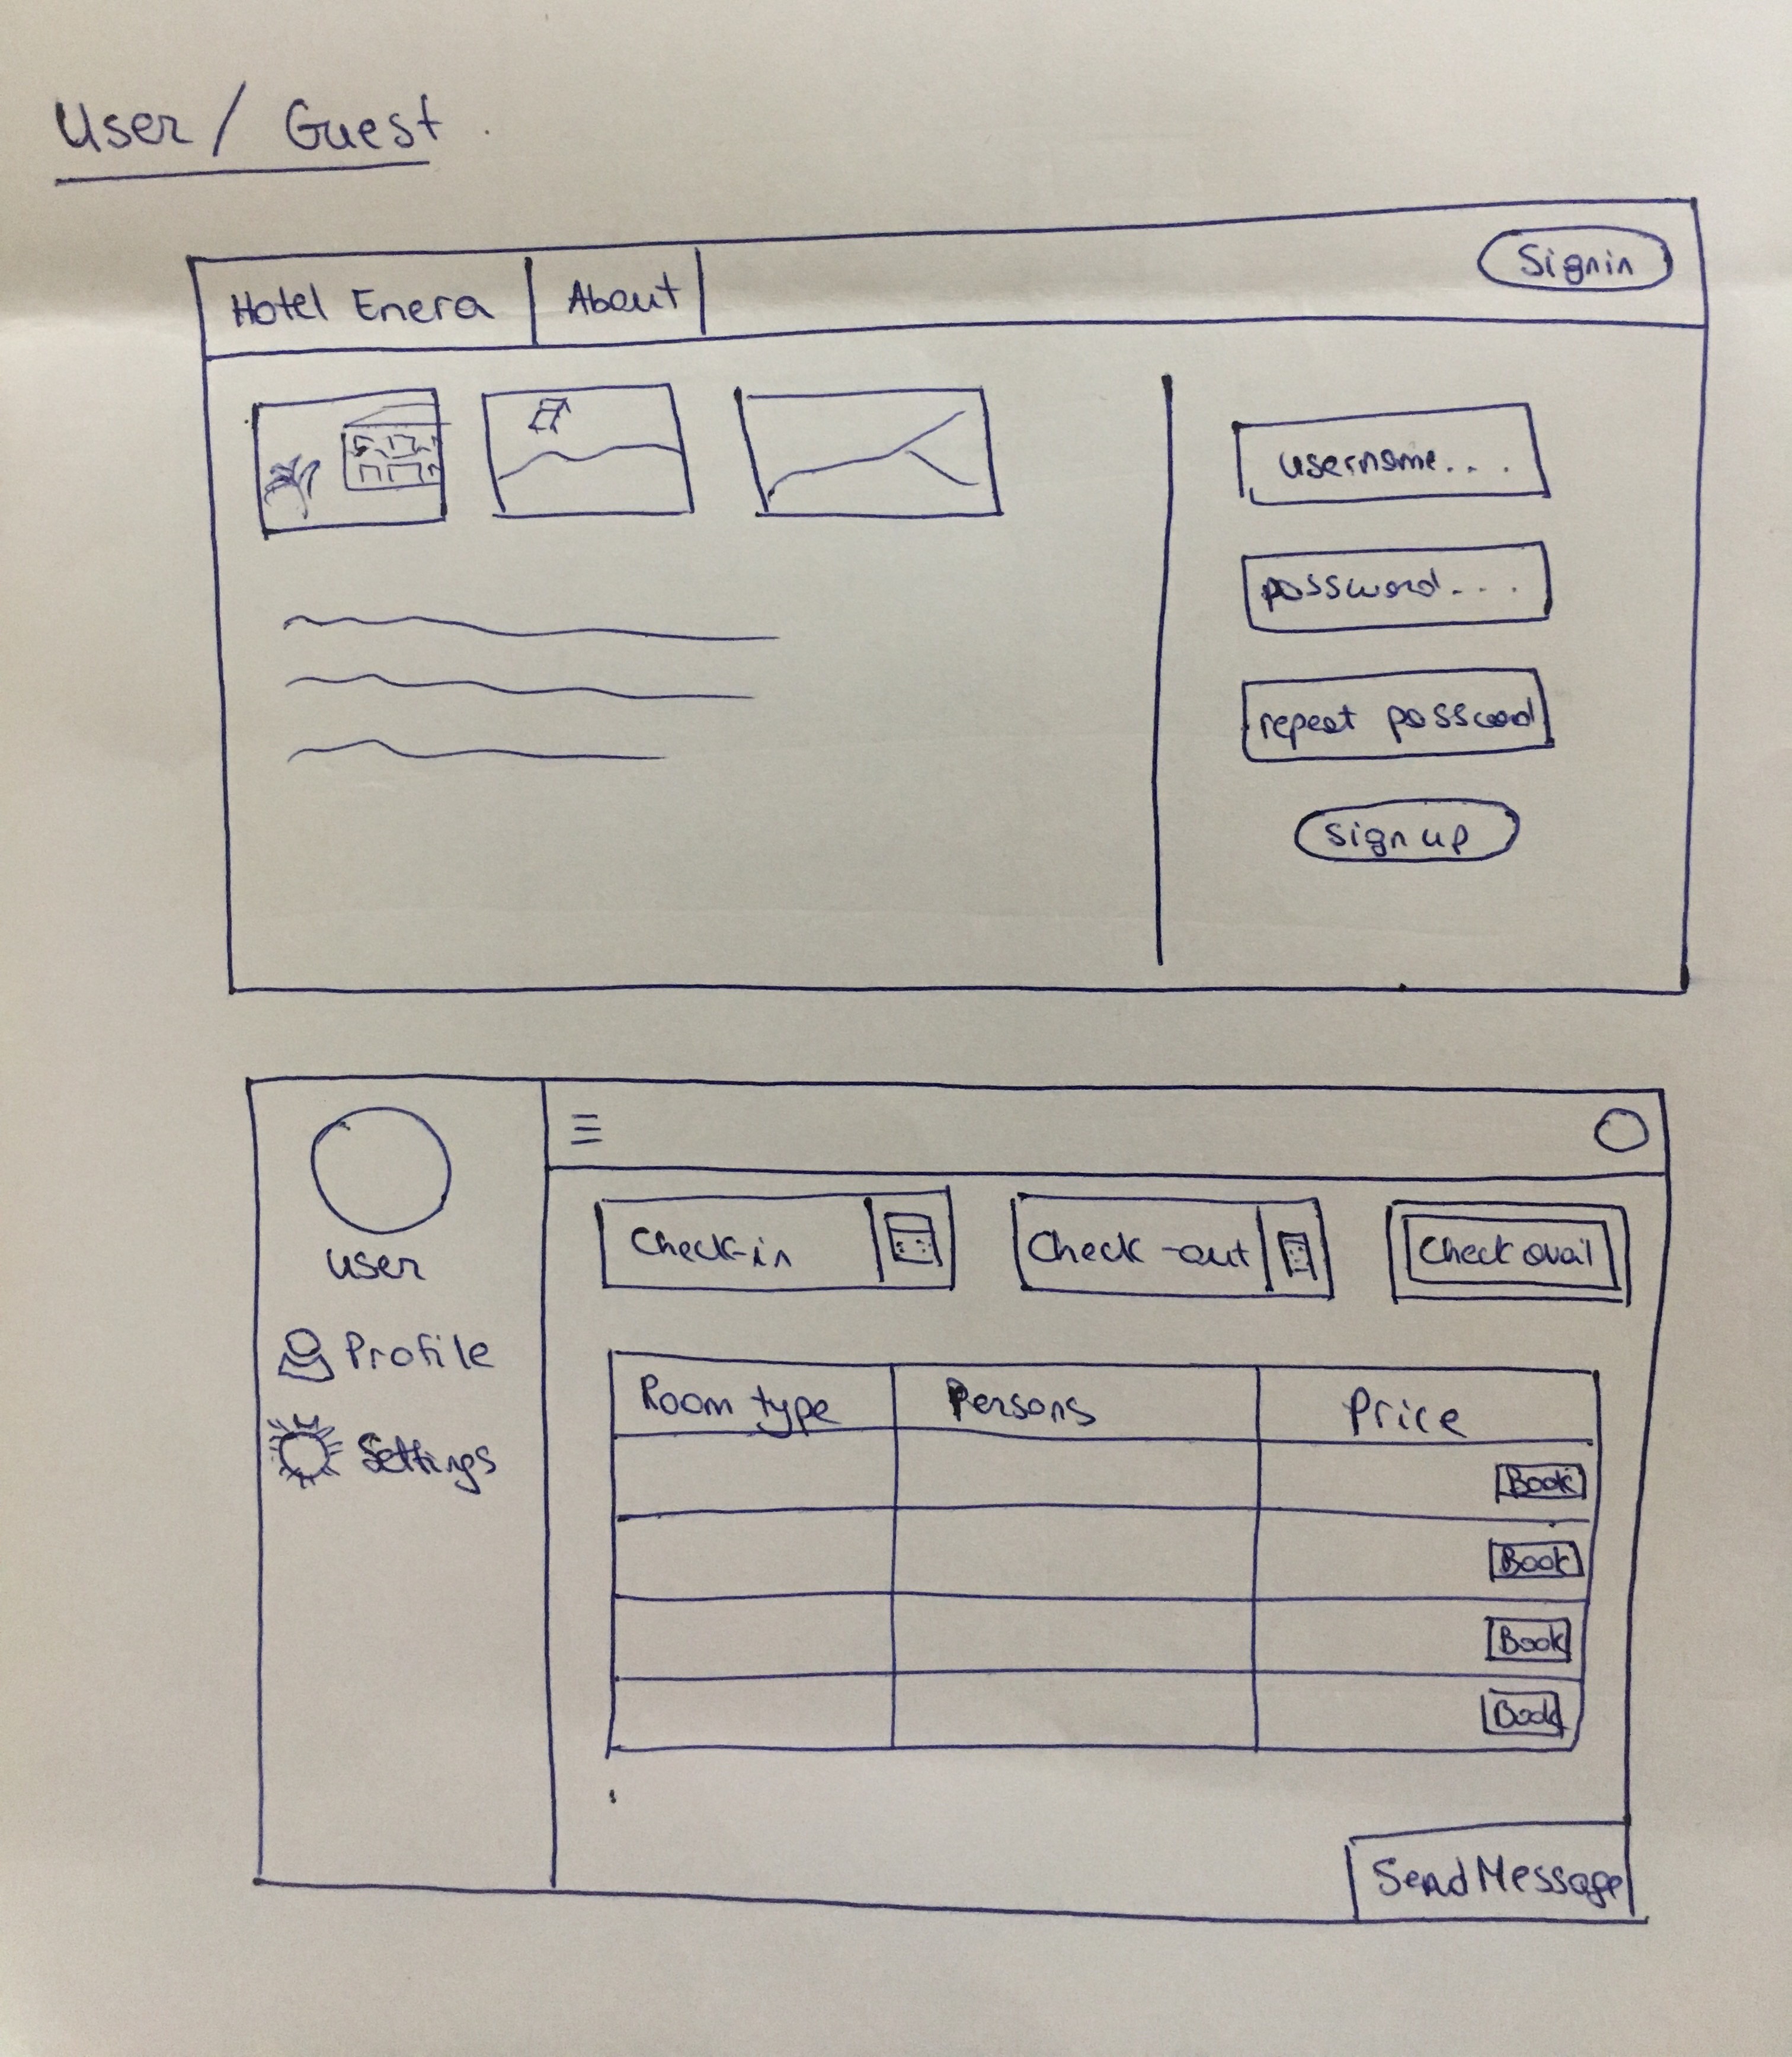 User / Guest
Hotel Enera
About
Signin
username. . . .
password. . . .
repeat password
sign up
user
Profile
Settings
Check-in
Check-out
Check avail
Room type
Persons
Price
Book
Book
Book
Book
Send Message